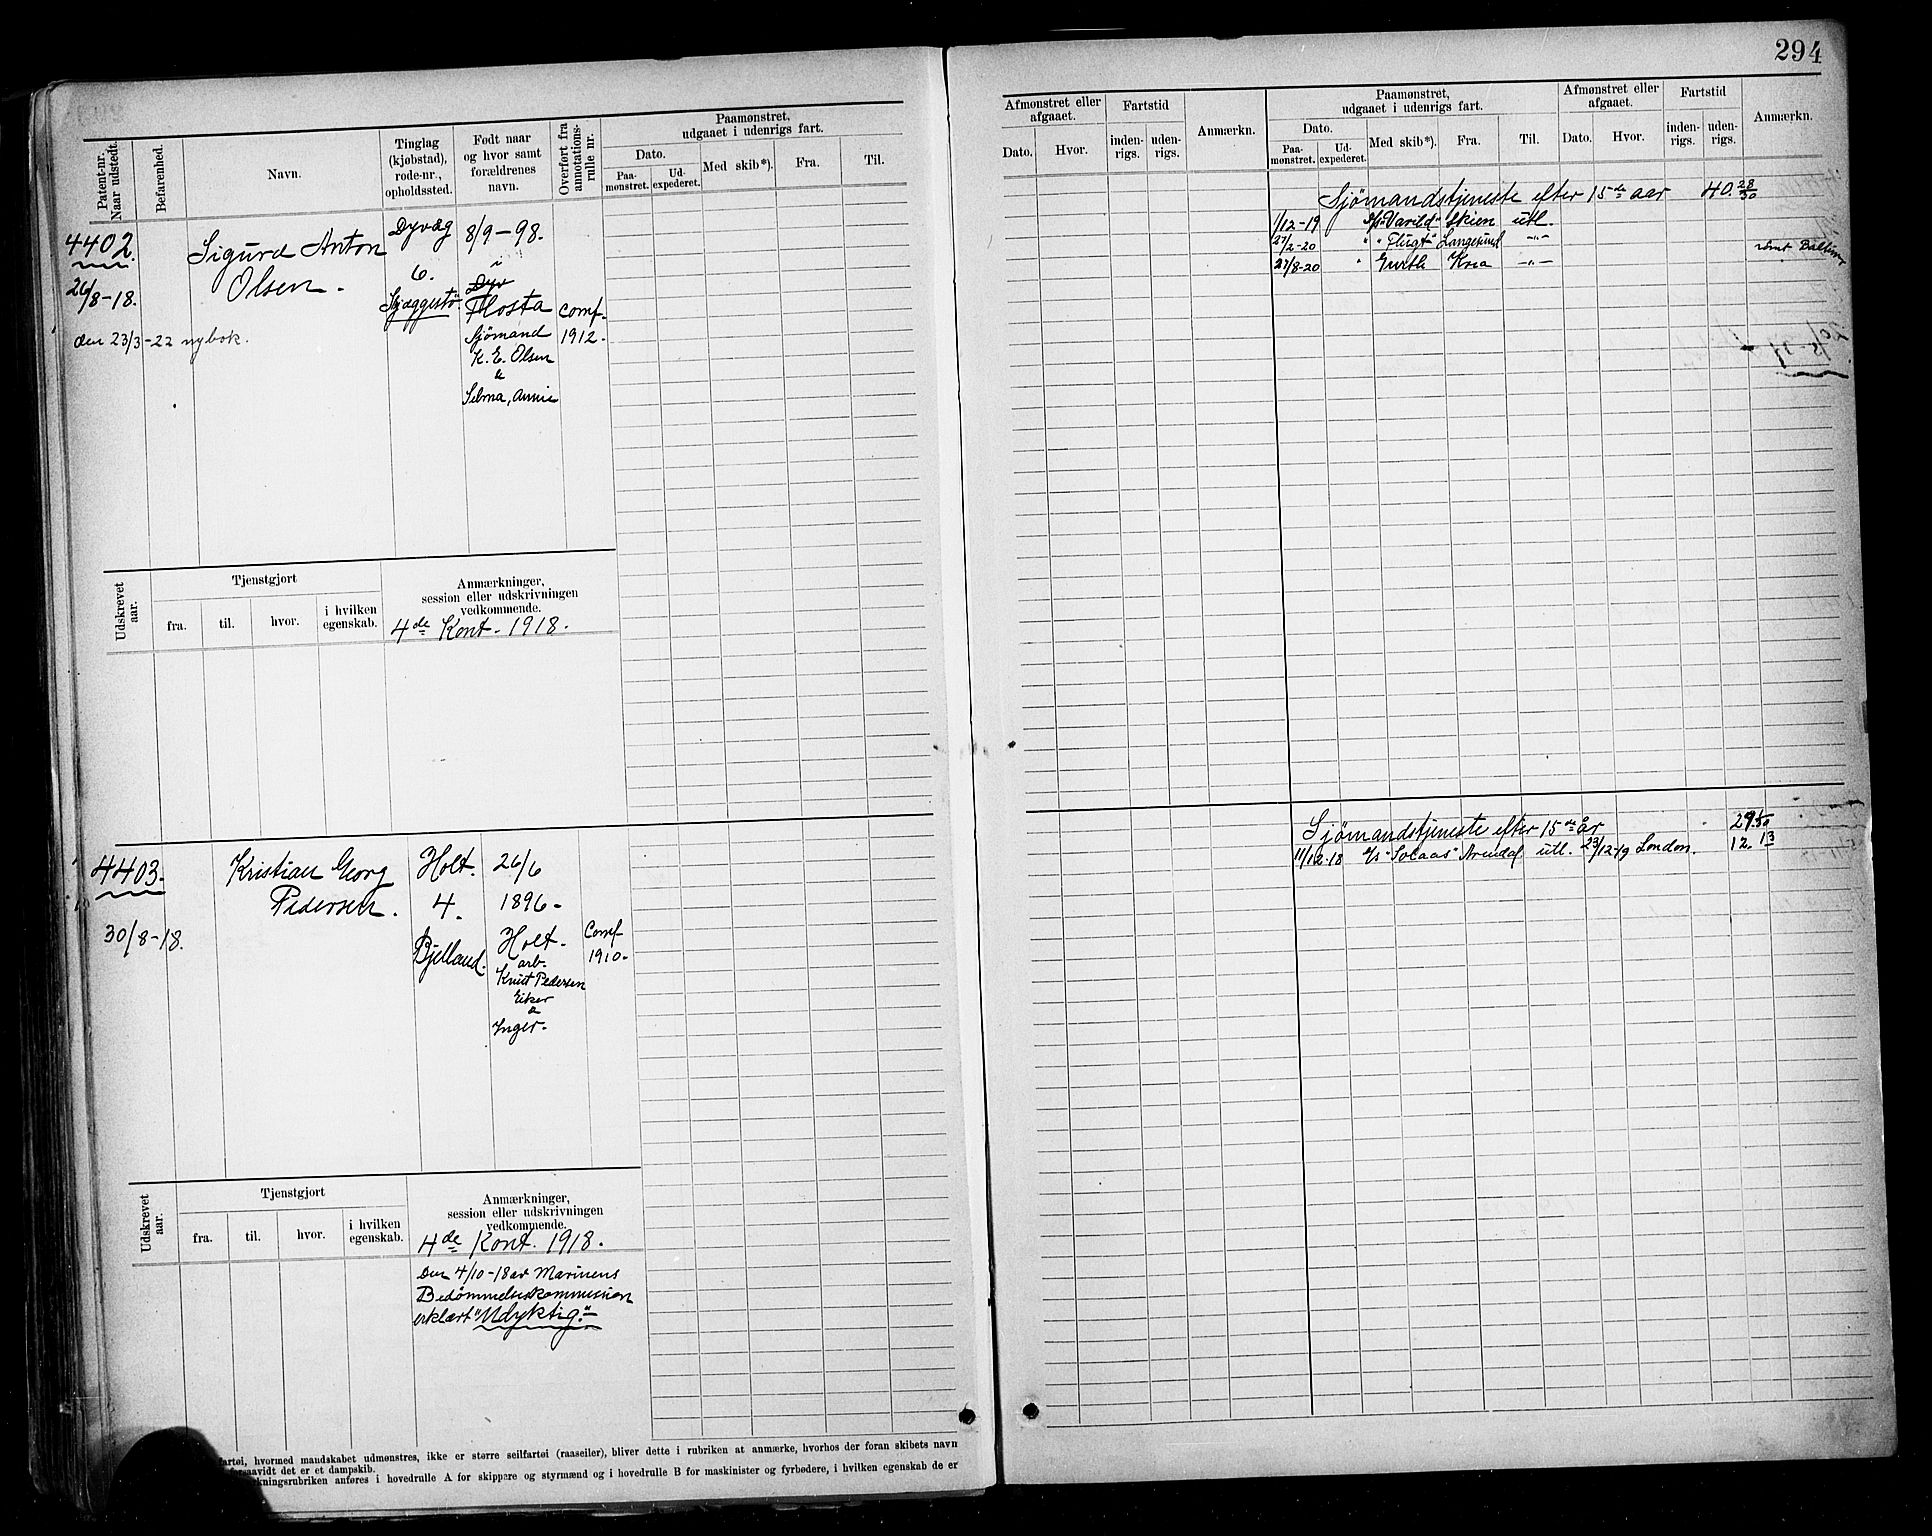 294
Patent-nr.
Naar udstedt.
Befarenhed.
Navn.
Tinglag
(kjøbstad),
rode-nr.,
opholdssted.
Født naar
og hvor samt
forældrenes
navn.
Overført fra
annotations-
rulle nr.
Paamønstret,
udgaaet i udenrigs fart.
Dato.
Paa-
mønstret.
Ud-
expederet.
Med skib*).
Fra.
Til.
4402
26/8-18.
den 23/3-22 ny bok.
Sigurd Anton
Olsen.
Dyvæg
6.
Skjæggestø
8/9-98.
i
Dyv
Flosta
Sjømand
K. E. Olsen
&
Selma, Annie
Comf.
1912.
Udskrevet
aar.
Tjenstgjort
fra.
til.
hvor.
i hvilken
egenskab.
Anmærkninger,
session eller udskrivningen
vedkommende.
4de Kont. 1918.
4403.
30/8-18.
Kristian Georg
Pedersen.
Holt.
4.
Bjelland.
26/6
1896-
Holt-
arb.
Knut Pedersen
Eiker
&
Inger-
Comf
1910-
Udskrevet
aar.
Tjenstgjort
fra.
til.
hvor.
i hvilken
egenskab.
Anmærkninger,
session eller udskrivningen
vedkommende.
4de Kont. 1918.
Den 4/10-18 av Marinens
Bedømmelseskommission
erklært "Udyktig."
artøi, hvormed mandskabet udmønstres, ikke er større seilfartøi (raaseiler), bliver dette i rubriken at anmærke, hvorhos der foran skibets navn
forsaavidt det er et dampskib.
kningsrubriken anføres i hovedrulle A for skippere og styrmænd og i hovedrulle B for maskinister og fyrbødere, i hvilken egenskab de er
Afmønstret eller
afgaaet.
Dato.
Hvor.
Fartstid
inden-
rigs.
uden-
rigs.
Anmærkn.
Paamønstret,
udgaaet i udenrigs fart.
Dato.
Paa-
mønstret.
Ud-
expederet.
Med skib*).
Fra.
Til.
Afmønstret eller
afgaaet.
Dato.
Hvor.
Fartstid
inden-
rigs.
uden-
rigs.
Anmærkn.
Sjømandstjeneste efter 15de aar 40. 28/30
1/12-19 S/S "Varild" Skien utl.
27/2-20 " "Flugt" Langesund -"-
27/8-20 " Gurth Kria -"-
Sjømandstjeneste efter 15de år 29.
11/12-18 S/S "Solaas" Arendal utl. 23/12-19 London. 12. 13